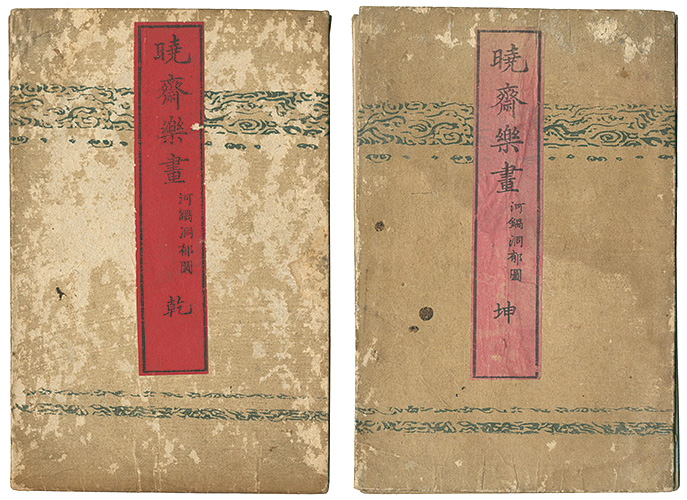 曉齋樂畫
河鍋洞郁圖
乾
曉齋樂畫
河鍋洞郁圖
坤